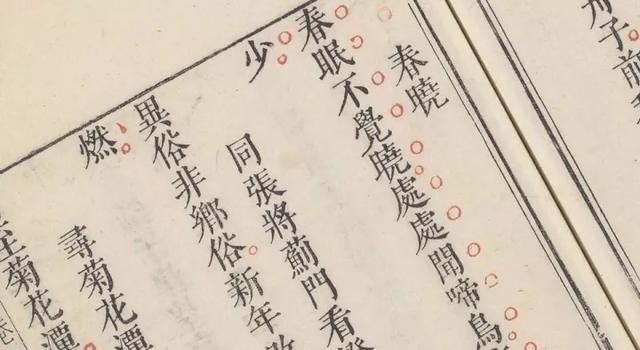 春曉
春眠不覺曉處處聞啼鳥
少
同張將薊門看
異俗非鄉俗新年
燃
尋菊花潭
菊花潭
舟子前